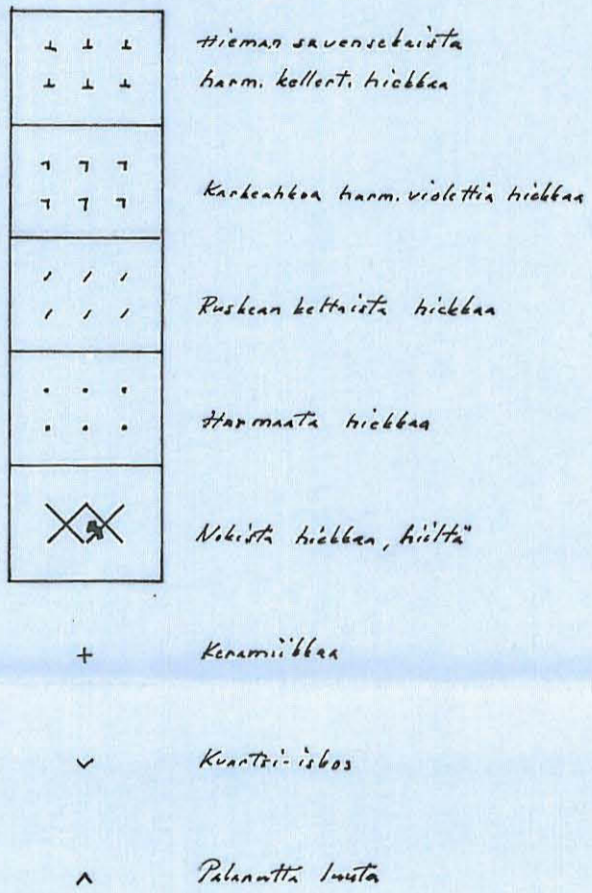 Hieman savensekaista
harm. kellert. hiekkaa
Karkeahkoa harm. violettia hiekkaa
Ruskean keltaista hiekkaa
Harmaata hiekkaa
Nokista hiekkaa, hiiltä
+ Keramiikkaa
Kvartsi-iskos
Palanutta luuta